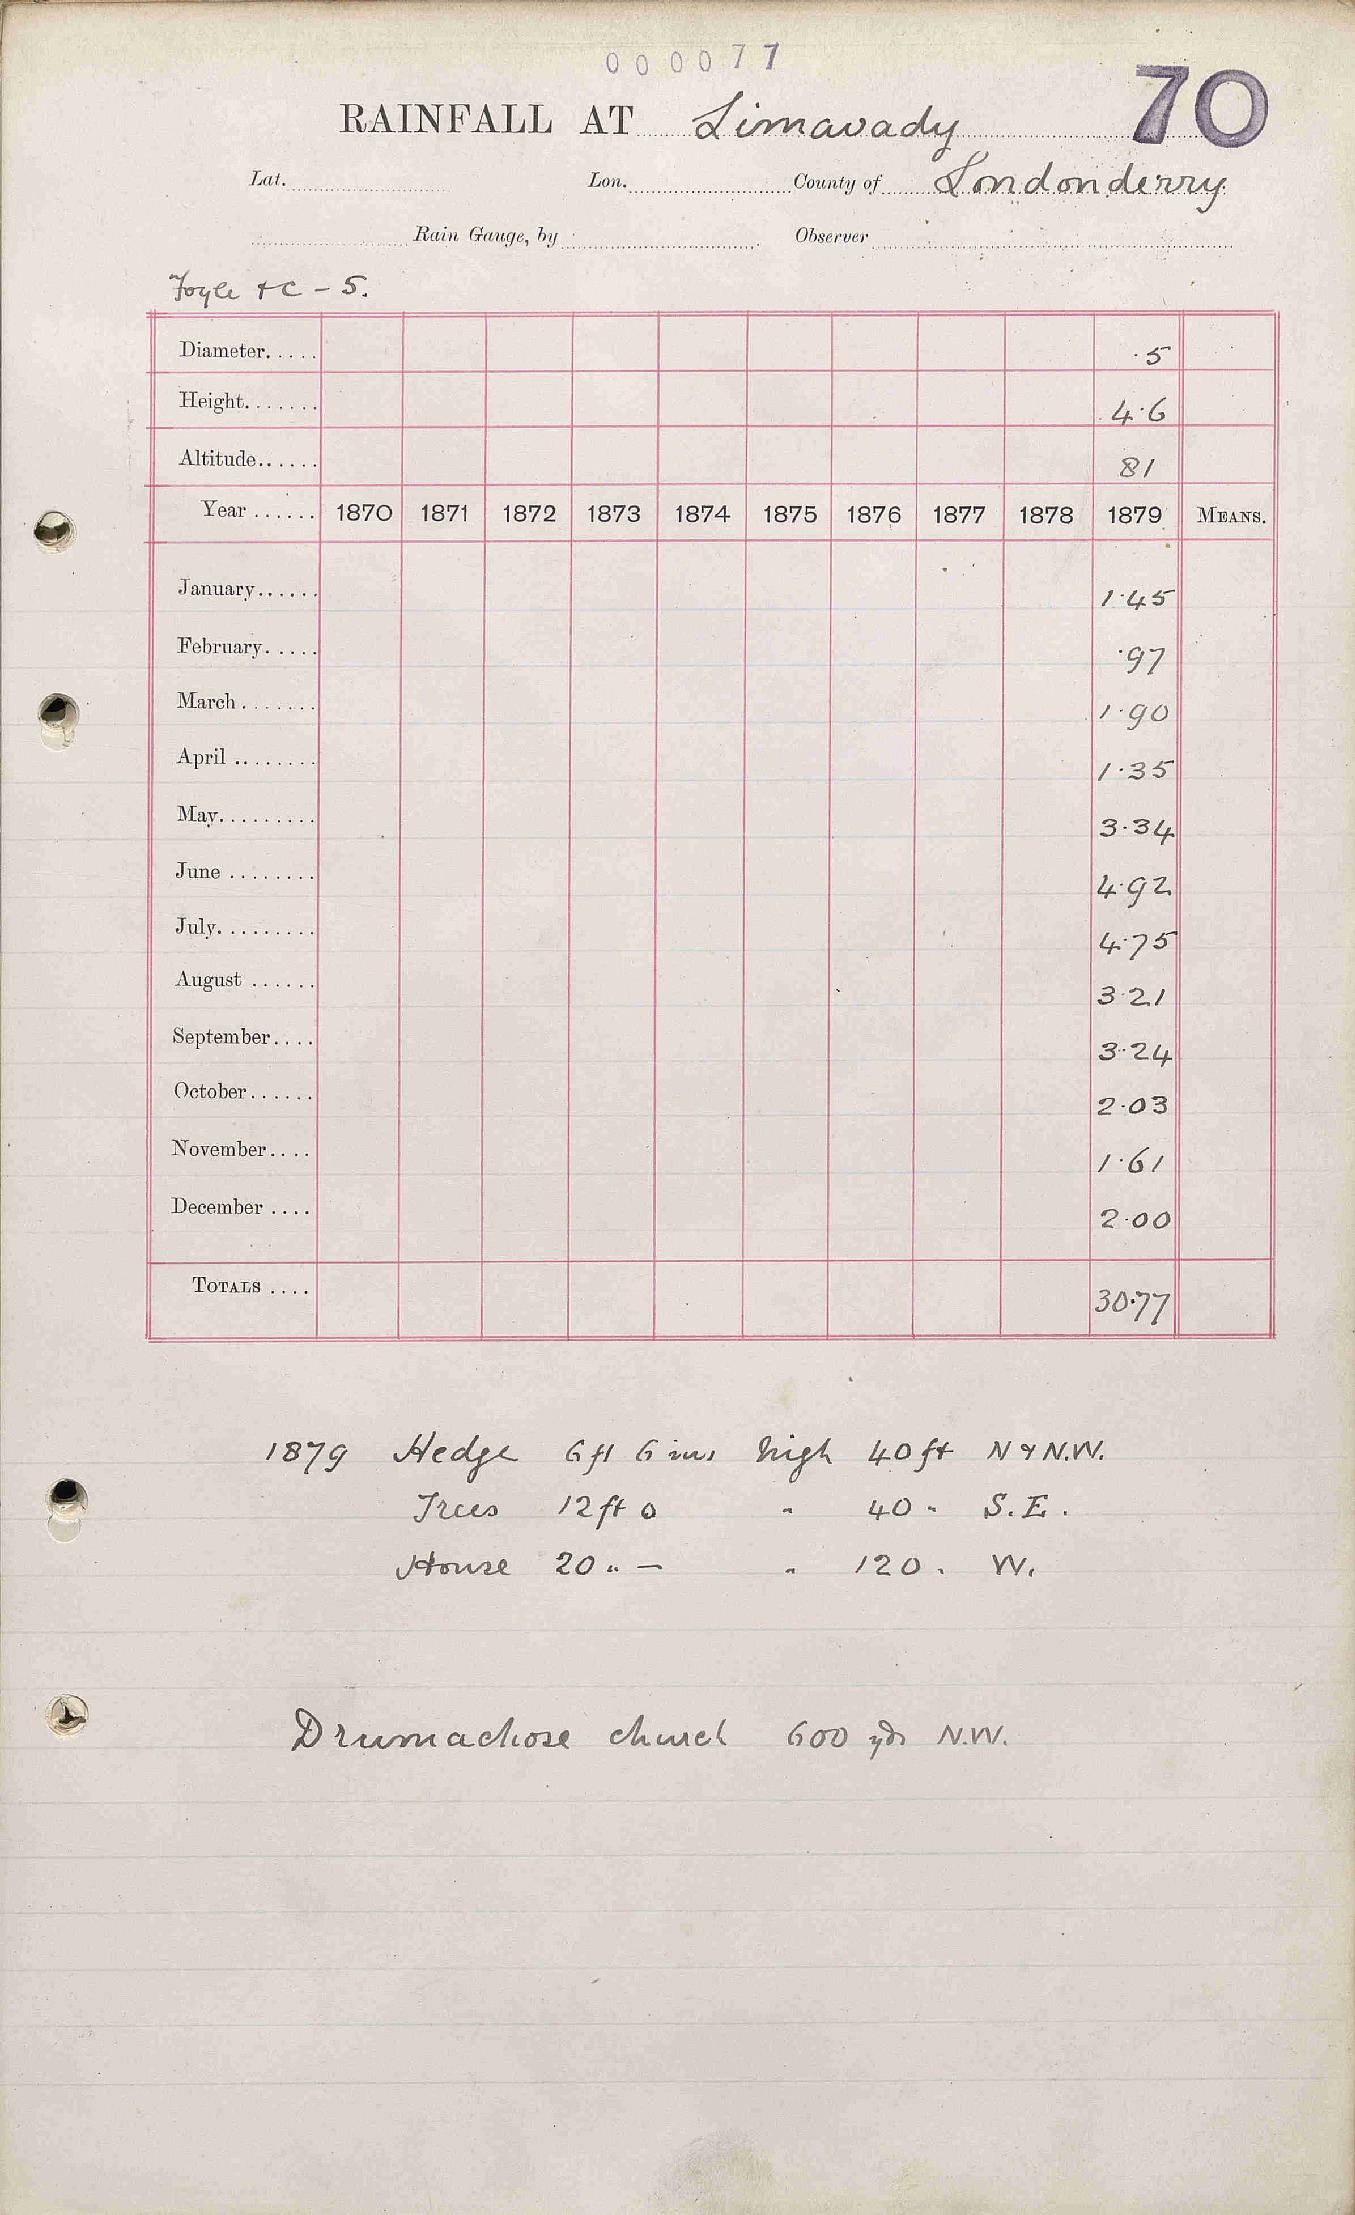 000077
70
RAINFALL AT Limavady
Lat. Lon. County of Londonderry
Rain Gauge, by Observer
Foyle &c - 5.
Diameter..... ·5
Height....... 4·6
Altitude...... 81
Year ...... 1870 1871 1872 1873 1874 1875 1876 1877 1878 1879 MEANS.
January...... 1·45
February..... ·97
March....... 1·90
April ........ 1·35
May......... 3·34
June ........ 4·92
July......... 4·75
August ...... 3·21
September.... 3·24
October...... 2·03
November.... 1·61
December .... 2·00
TOTALS .... 30·77
1879 Hedge 6 ft 6 ins high 40 ft N & N.W.
Trees 12 ft 0 " 40 " S.E.
House 20 " — " 120 " W.
Drumachose church 600 yds N.W.